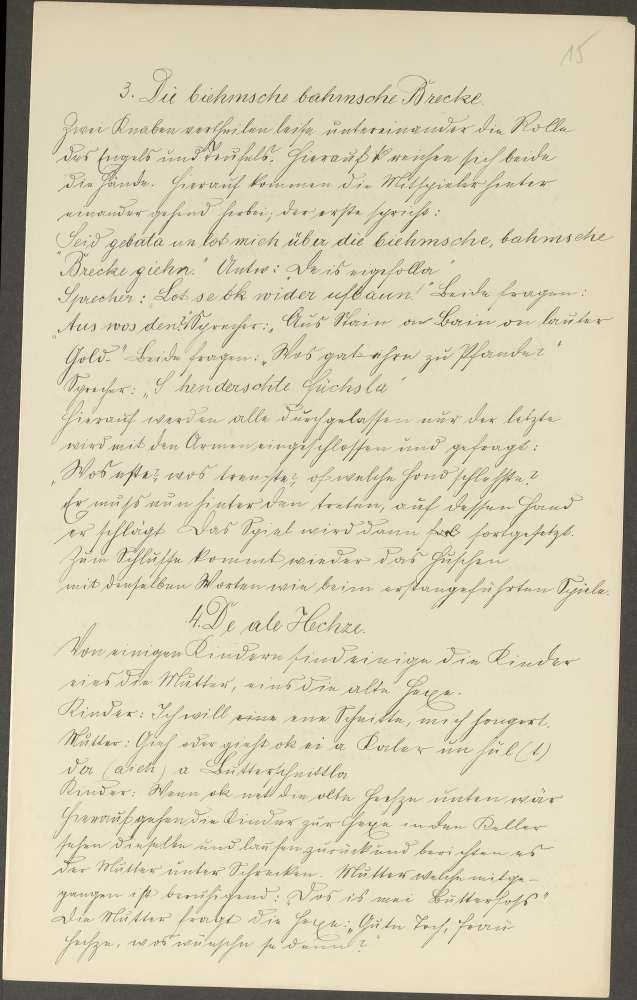 15
3. Die biehmsche bahmsche Brecke.
Zwei Knaben vertheilen leise untereinander die Rolle
des Engels und Teufels. Hierauf kreuzen sich beide
die Hände. Hierauf kommen die Mitspieler hinter
einander gehend herbei; der erste spricht:
"Seid gebata un lot mich über die biehmsche, bahmsche
Brecke ziehn." Antw: "Se is eigefolla"
Sprecher: "Lot se ok wider ufbaun!" Beide fragen:
"Aus wos den?" Sprecher: "Aus Stain on Bain on lauter
Gold." Beide fragen: "Wos gat ihr zu Pfande?"
Sprecher: "'S henderschte Füchsla"
Hierauf werden alle durchgelassen nur der letzte
wird mit den Armen eingeschlossen und gefragt:
"Wos eßte?, wos trenste?, of welche Hond schlechste?
Er muß nun hinter den treten, auf dessen Hand
er schlägt. Das Spiel wird dann fortgesetzt.
Zum Schlusse kommt wieder das Huschen
mit denselben Worten wie beim erstangeführten Spiele.
4. De ale Hechze.
Von einigen Kindern sind einige die Kinder
eins die Mutter, eins die alte Hexe.
Kinder: Ich will eine ene Schnitte, mich hongert.
Mutter: Gieh oder gieht ok ei a Kaler un hul(t)
der (aich) a Butterschnittla
Kinder: Wenn ok net die olte Hechze unten wär
Hierauf gehen die Kinder zur Hexe in den Keller
sehen dieselbe und laufen zurück und berichten es
der Mutter unter Schrecken. Mutter welche mitge-
gangen ist beruhigend: "Dos is mei Butterfoß"
Die Mutter fragt die Hexe: "Gute Toch, Frau
Hechze, wos wünsche se denn?"